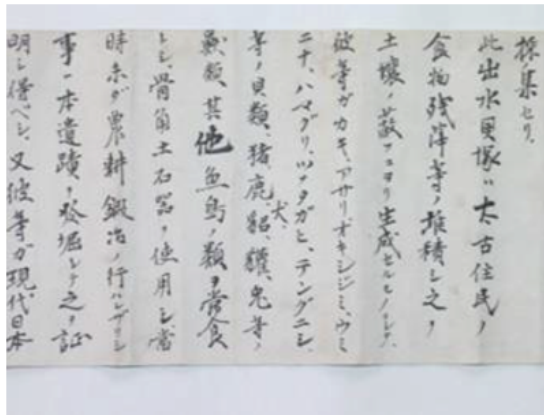 採集セリ。
此出水貝塚ハ太古住民ノ
食物残滓等ノ堆積シ之ヲ
土壌ノ蔽フニヨリ生成セルモノニシテ、
彼等ガカキ、アサリオキシジミ、ウミ
ニナ、ハマグリ、ツメタガヒ、テングニシ、
等ノ貝類、猪鹿犬、貂、獾、兎等ノ
獣類、其他魚鳥ノ類ヲ常食
トシ、骨角土石器ヲ使用シ当
時未ダ農耕鍛冶ノ行ハレザリシ
事ハ本遺蹟ノ発堀シテ之ヲ証
明シ得ベシ、又彼等ガ現代日本